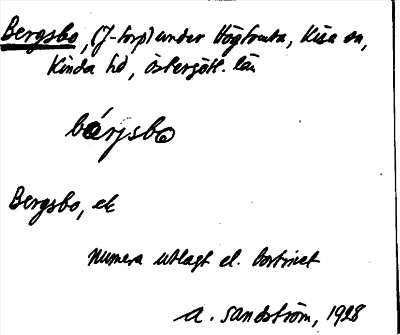 Bergsbo, (J-torp) under Högtomta, Kisa sn,
Kinda hd, östergötl. län
bárjsbo
Bergsbo, ek
numera utlagt el. bortrivet
A. Sandström, 1928